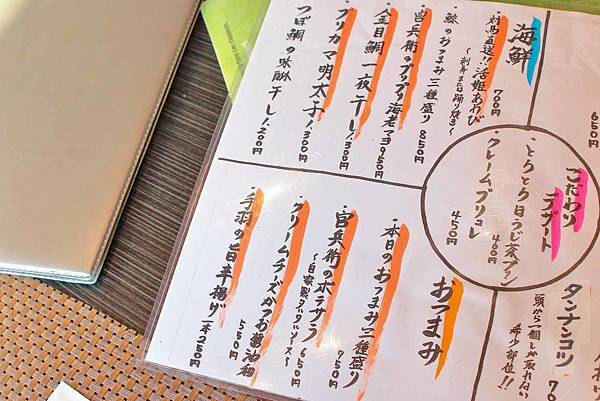 海鮮
・対馬直送!!活姫あわび 700円
〜刺身または踊り焼き〜
・鯨のおつまみ三種盛り 850円
・官兵衛のプリプリ海老マヨ 950円
・金目鯛一夜干し 1,300円
・ブリカマ明太子 1,300円
・つぼ鯛の味醂干し 1,200円
650円
こだわり
デザート
・とりとりほうじ茶プリン 400円
・クレームブリュレ 450円
おつまみ
・本日のおつまみ三種盛り 750円
・官兵衛のポテサラ 650円
〜自家製タルタルソース〜
・クリームチーズかつお醤油和 550円
・手羽の旨辛揚げ 一本250円
タンナンコツ 70
頭から一個しか取れない
希少部位!!